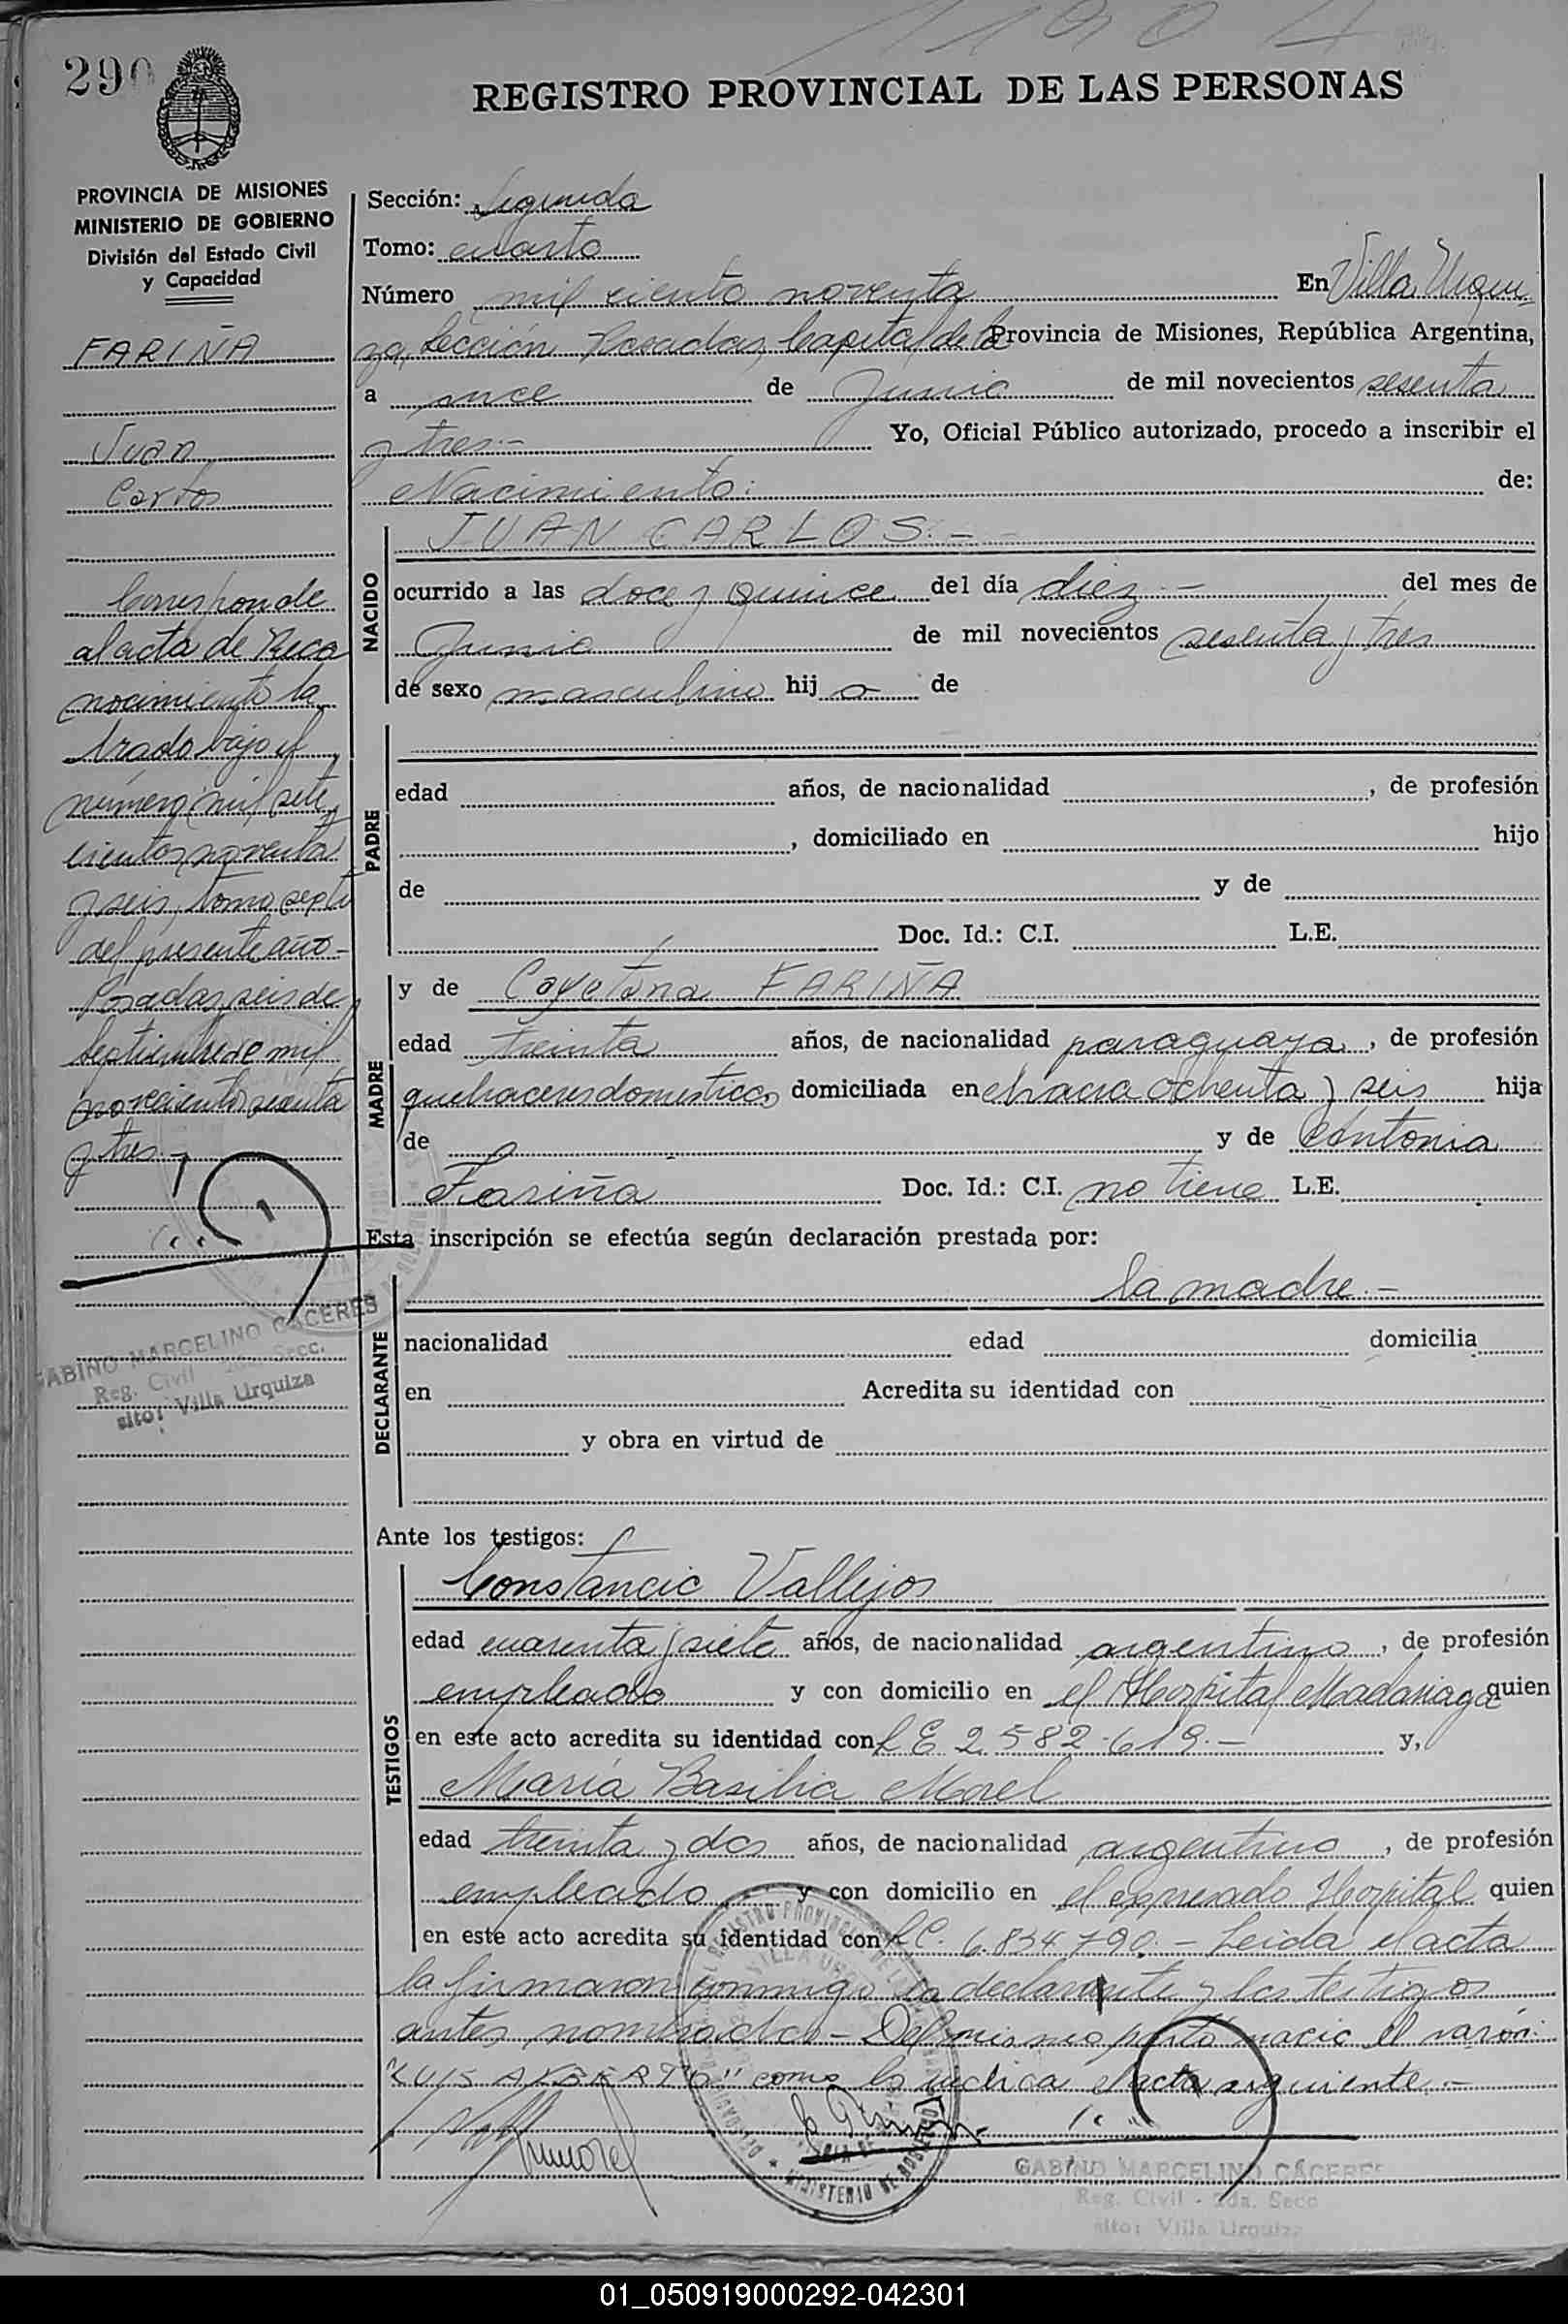 290
REGISTRO PROVINCIAL DE LAS PERSONAS
PROVINCIA DE MISIONES
MINISTERIO DE GOBIERNO
División del Estado Civil
y Capacidad
FARIÑA
Juan
Carlos
Corresponde
al acta de Reco
nocimiento la
brado bajo el
número mil sete
cientos noventa
y seis, tomo septi
del presente año -
Posadas, seis de
septiembre de mil
novecientos sesenta
y tres.-
GABINO MARCELINO CACERES
Reg. Civil 2da. Secc.
sito: Villa Urquiza
Sección: Segunda
Tomo: cuarto
Número mil ciento noventa En Villa Urqui-
za, Sección Posadas, Capital de la Provincia de Misiones, República Argentina,
a once de Junio de mil novecientos sesenta
y tres.- Yo, Oficial Público autorizado, procedo a inscribir el
Nacimiento: de:
NACIDO
JUAN CARLOS.-
ocurrido a las doce y quince del día diez.- del mes de
Junio de mil novecientos sesenta y tres
de sexo masculino hijo de
PADRE
edad años, de nacionalidad , de profesión
, domiciliado en hijo
de y de
Doc. Id.: C.I. L.E.
MADRE
y de Cayetana FARIÑA
edad treinta años, de nacionalidad paraguaya, de profesión
quehaceres domesticos domiciliada en chacra ochenta y seis hija
de y de Antonia
Fariña Doc. Id.: C.I. no tiene L.E.
Esta inscripción se efectúa según declaración prestada por:
DECLARANTE
la madre.-
nacionalidad edad domicilia
en Acredita su identidad con
y obra en virtud de
Ante los testigos:
TESTIGOS
Constancio Vallejos
edad cuarenta y siete años, de nacionalidad argentino, de profesión
empleado y con domicilio en el Hospital Madariaga quien
en este acto acredita su identidad con L E 2.582.619.- y,
María Basilia Morel
edad treinta y dos años, de nacionalidad argentina, de profesión
empleado y con domicilio en el expresado Hospital quien
en este acto acredita su identidad con L C. 6.834.790.- Leida el acta
la firmaron conmigo la declarante y los testigos
antes nombrados - Del mismo parto nacio el varón:
"LUIS ALBERTO" como lo indica el acta siguiente.-
GABINO MARCELINO CÁCERES
Reg. Civil - 2da. Secc
sito: Villa Urquiza
01_050919000292-042301